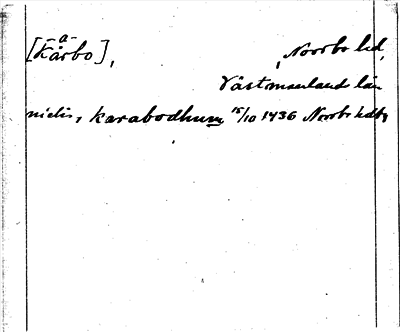 -a-
[Kårbo], Norrbo hd,
Västmanland län
nielis, karabodhum 15/10 1436 Norrb hdb